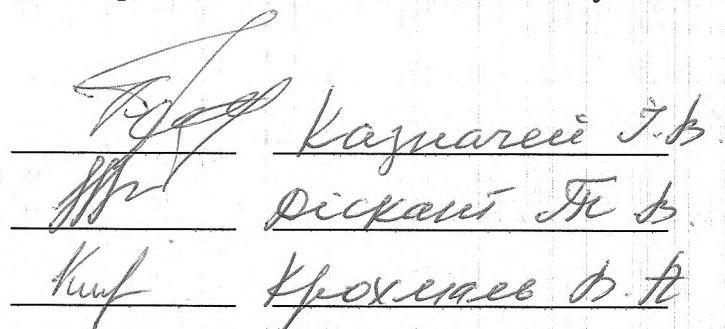 Казначей І.В
Діскант Т В.
Крохмаль В.А